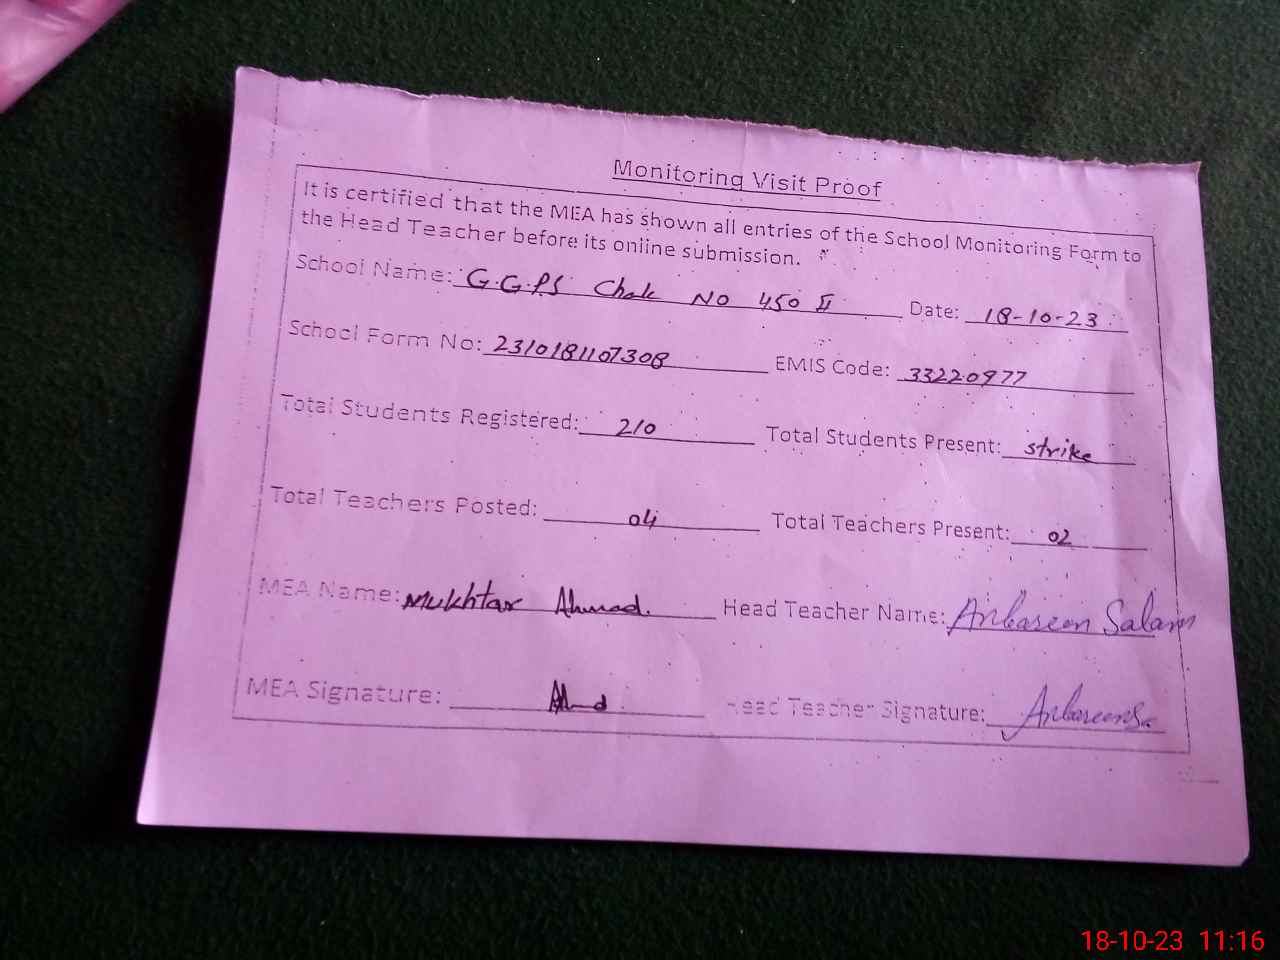 Monitoring Visit Proof
It is certified that the MEA has shown all entries of the School Monitoring Form to
the Head Teacher before its online submission.
School Name: G.G.P.S Chak No 450 II Date: 18-10-23
School Form No: 2310181107308 EMIS Code: 33220977
Total Students Registered: 210 Total Students Present: strike
Total Teachers Posted: 04 Total Teachers Present: 02
MEA Name: Mukhtar Ahmad. Head Teacher Name: Anbareen Salam
MEA Signature: Head Teacher Signature: AnbareenSa
18-10-23 11:16